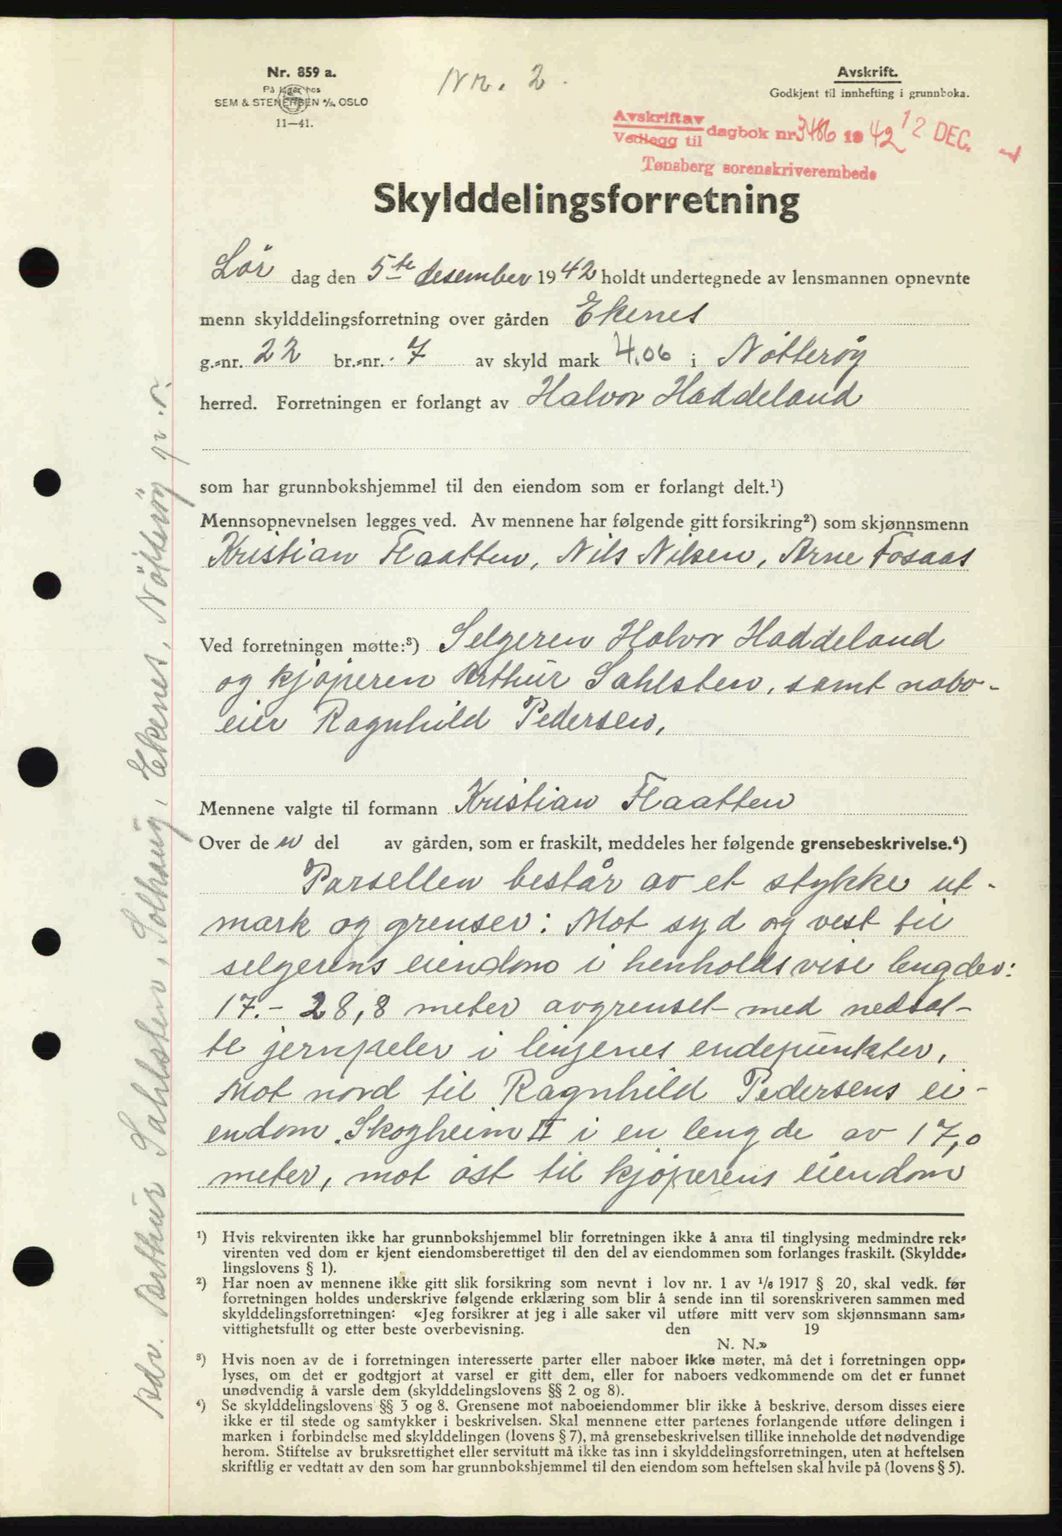 Nr. 859 a.
På lager hos
SEM & STENERSEN A/S, OSLO
11—41.
Nr. 2.
Avskrift.
Godkjent til innhefting i grunnboka.
Avskrift av
Vedlegg til dagbok nr. 3486 19 42 12 DEC.
Tønsberg sorenskriverembede
Skylddelingsforretning
Lör dag den 5te desember 1942 holdt undertegnede av lensmannen opnevnte
menn skylddelingsforretning over gården Ekenes
g.-nr. 22 br.-nr. 7 av skyld mark 4.06 i Nötteröy
herred. Forretningen er forlangt av Halvor Haddeland
som har grunnbokshjemmel til den eiendom som er forlangt delt.¹)
Mennsopnevnelsen legges ved. Av mennene har følgende gitt forsikring²) som skjønnsmenn
Kristian Flaatten, Nils Nilsen, Arne Fosaas
Ved forretningen møtte:³) Selgeren Halvor Haddeland
og kjöperen Arthur Sahlsten, samt nabo-
eier Ragnhild Pedersen,
Mennene valgte til formann Kristian Flaatten
Over de n del av gården, som er fraskilt, meddeles her følgende grensebeskrivelse.⁴)
Parsellen består av et stykke ut-
mark og grenser: Mot syd og vest til
selgerens eiendom i henholdsvise lengder:
17.- 28,8 meter avgrenset med nedsat-
te jernpeler i linjenes endepunkter,
Mot nord til Ragnhild Pedersens ei-
endom, Skogheim II i en lengde av 17,0
meter, mot öst til kjöperens eiendom
¹) Hvis rekvirenten ikke har grunnbokshjemmel blir forretningen ikke å anta til tinglysing medmindre rek-
virenten ved dom er kjent eiendomsberettiget til den del av eiendommen som forlanges fraskilt. (Skyldde-
lingslovens § 1).
²) Har noen av mennene ikke gitt slik forsikring som nevnt i lov nr. 1 av 1/6 1917 § 20, skal vedk. før
forretningen holdes underskrive følgende erklæring som blir å sende inn til sorenskriveren sammen med
skylddelingsforretningen: «Jeg forsikrer at jeg i alle saker vil utføre mitt verv som skjønnsmann sam-
vittighetsfullt og etter beste overbevisning. den 19
N. N.»
³) Hvis noen av de i forretningen interesserte parter eller naboer ikke møter, må det i forretningen opp-
lyses, om det er godtgjort at varsel er gitt dem, eller for naboers vedkommende om det er funnet
unødvendig å varsle dem (skylddelingslovens §§ 2 og 8).
⁴) Se skylddelingslovens §§ 3 og 8. Grensene mot naboeiendommer blir ikke å beskrive, dersom disses eiere
ikke er til stede og samtykker i beskrivelsen. Skal mennene etter partenes forlangende utføre delingen i
marken i forbindelse med skylddelingen (lovens § 7), må grensebeskrivelsen tillike inneholde det nødvendige
herom. Stiftelse av bruksrettighet eller servitutt må ikke tas inn i skylddelingsforretningen, uten at heftelsen
skriftlig er vedtatt av den som har grunnbokshjemmel til den eiendom som heftelsen skal hvile på (lovens § 5).
Adr. Arthur Sahlsten, Solhaug, Ekenes, Nötteröy pr. r.